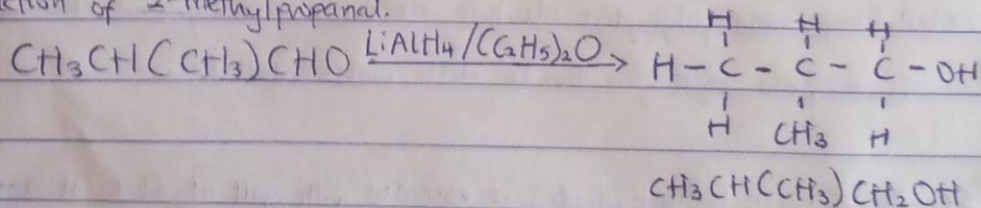 of 2-methylpropanal.
CH3CH(CH3)CHO LiAlH4/(C2H5)2O → H - C - C - C - OH
H H H
H CH3 H
CH3CH(CH3)CH2OH